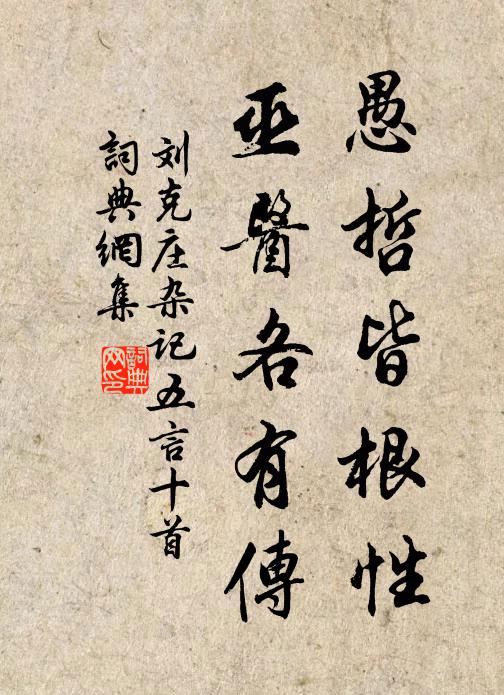 愚哲皆根性
巫醫各有傳
刘克庄杂记五言十首
詞典網集
詞典网印